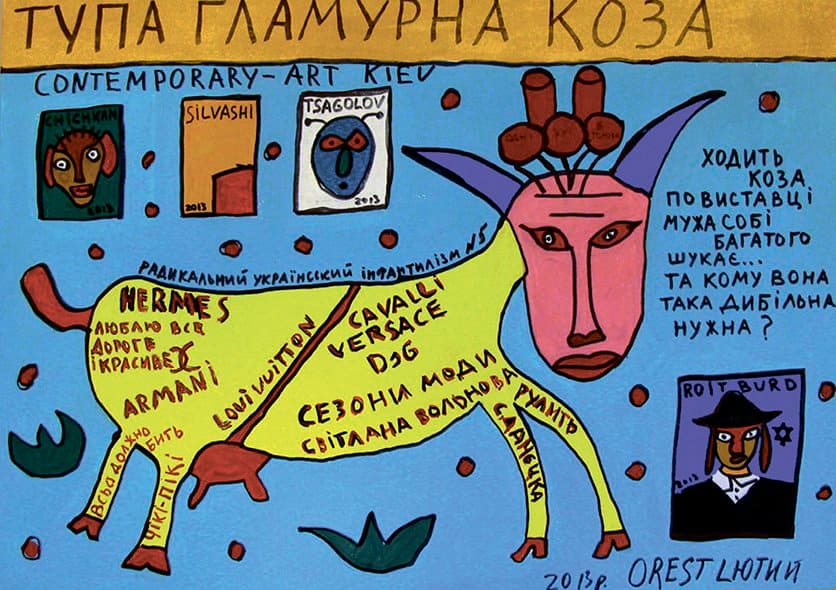 ТУПА ГЛАМУРНА КОЗА
CONTEMPORARY-ART KIEV
CHICHKAN
2013
SILVASHI
2013
TSAGOLOV
2013
ХОДИТЬ
КОЗА
ПО ВИСТАВЦІ
МУЖА СОБІ
БАГАТОГО
ШУКАЄ...
ТА КОМУ ВОНА
ТАКА ДИБІЛЬНА
НУЖНА?
РАДИКАЛЬНИЙ УКРАЇНССКИЙ ІНФАНТИЛІЗМ №5
HERMES
ЛЮБЛЮ ВСЕ
ДОРОГЕ
І КРАСИВЕ
ARMANI
LOUI VUITTON
CAVALLI
VERSACE
D&G
СЕЗОНИ МОДИ
СВІТЛАНА ВОЛЬНОВА
РУЛИТЬ
ВСЬО ДОЛЖНО
БИТЬ
ЧІКІ-ПІКІ
ROIT BURD
2013
2013р. OREST LЮТИЙ